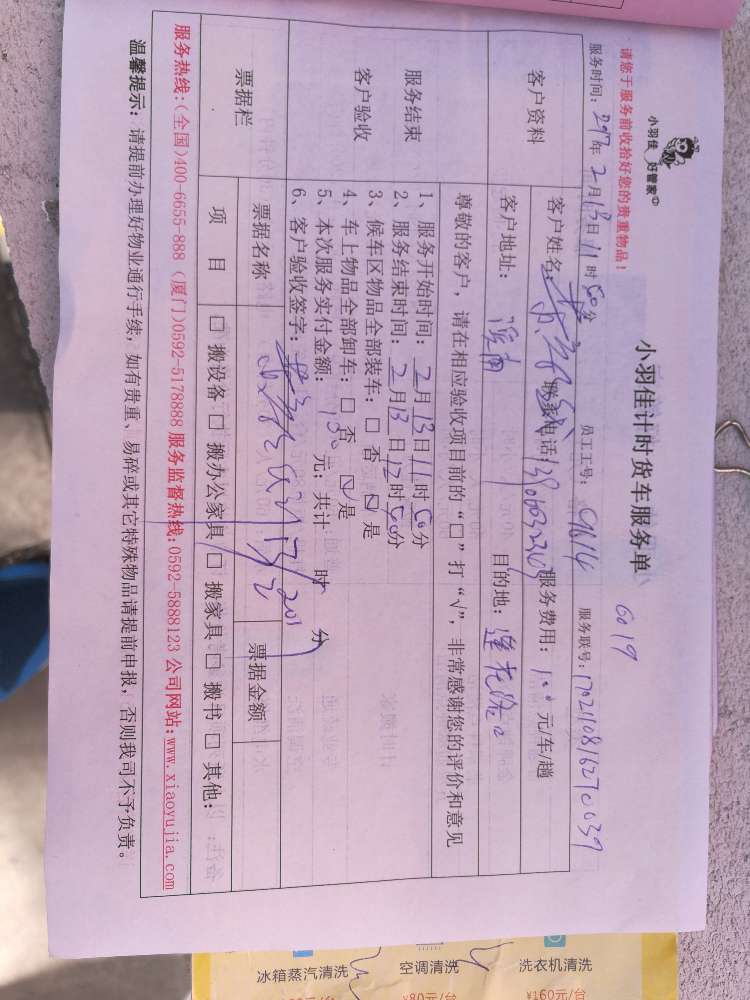 小羽佳 好管家
小羽佳计时货车服务单
6019
请您于服务前收拾好您的贵重物品！
服务时间：2017年2月13日11时50分 员工工号： 服务联号：
客户资料
客户姓名： 联系电话 服务费用：100元/车/趟
客户地址： 目的地：莲花路口
尊敬的客户，请在相应验收项目前的“□”打“√”，非常感谢您的评价和意见
服务结束
客户验收
1、服务开始时间：2月13日11时50分
2、服务结束时间：2月13日12时50分
3、候车区物品全部装车：□ 否 ☑ 是
4、车上物品全部卸车：□ 否 ☑ 是
5、本次服务实付金额：130元；共计 时 分
6、客户验收签字：
票据栏
票据名称
票据金额
项 目
□ 搬设备 □ 搬办公家具 □ 搬家具 □ 搬书 □ 其他：
服务热线：(全国)400-6655-888 (厦门)0592-5178888 服务监督热线：0592-5888123 公司网站：www.xiaoyujia.com
温馨提示：请提前办理好物业通行手续，如有贵重、易碎或其它特殊物品请提前申报，否则我司不予负责。
冰箱蒸汽清洗
空调清洗
¥80元/台
洗衣机清洗
¥160元/台